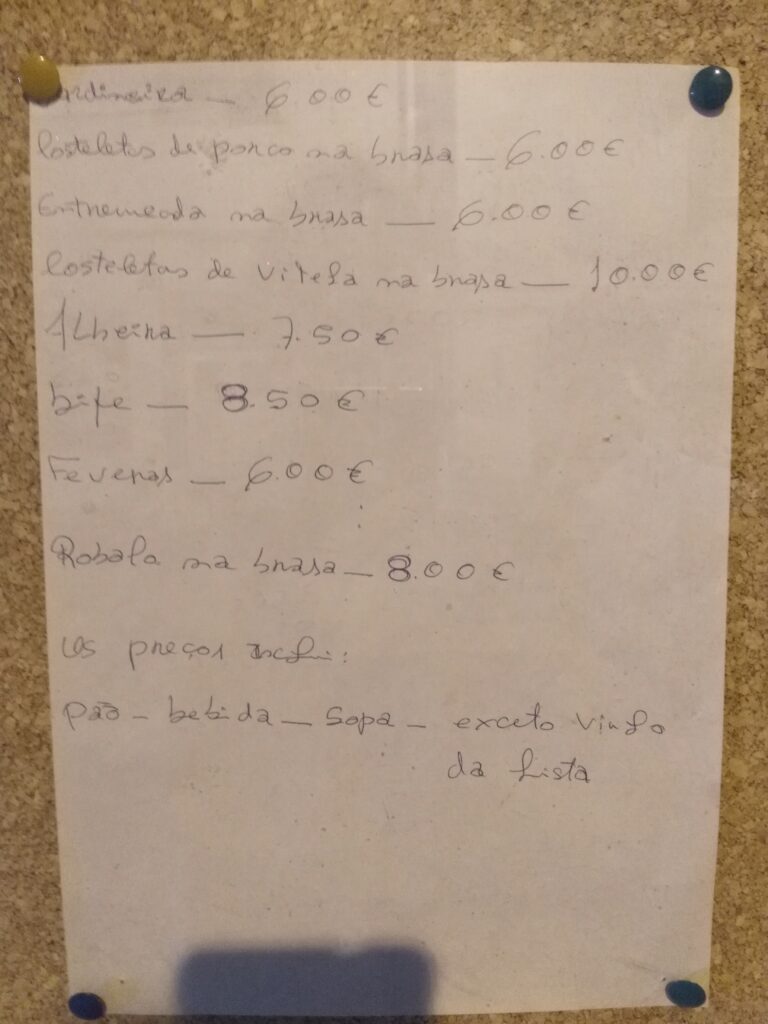 Jardineira — 6.00€
Costeletas de porco na brasa — 6.00€
Entremeada na brasa — 6.00€
Costeletas de vitela na brasa — 10.00€
Alheira — 7.50€
bife — 8.50€
Feveras — 6.00€
Robalo na brasa — 8.00€
Os preços inclui:
pão - bebida — sopa - exceto vinho
da lista